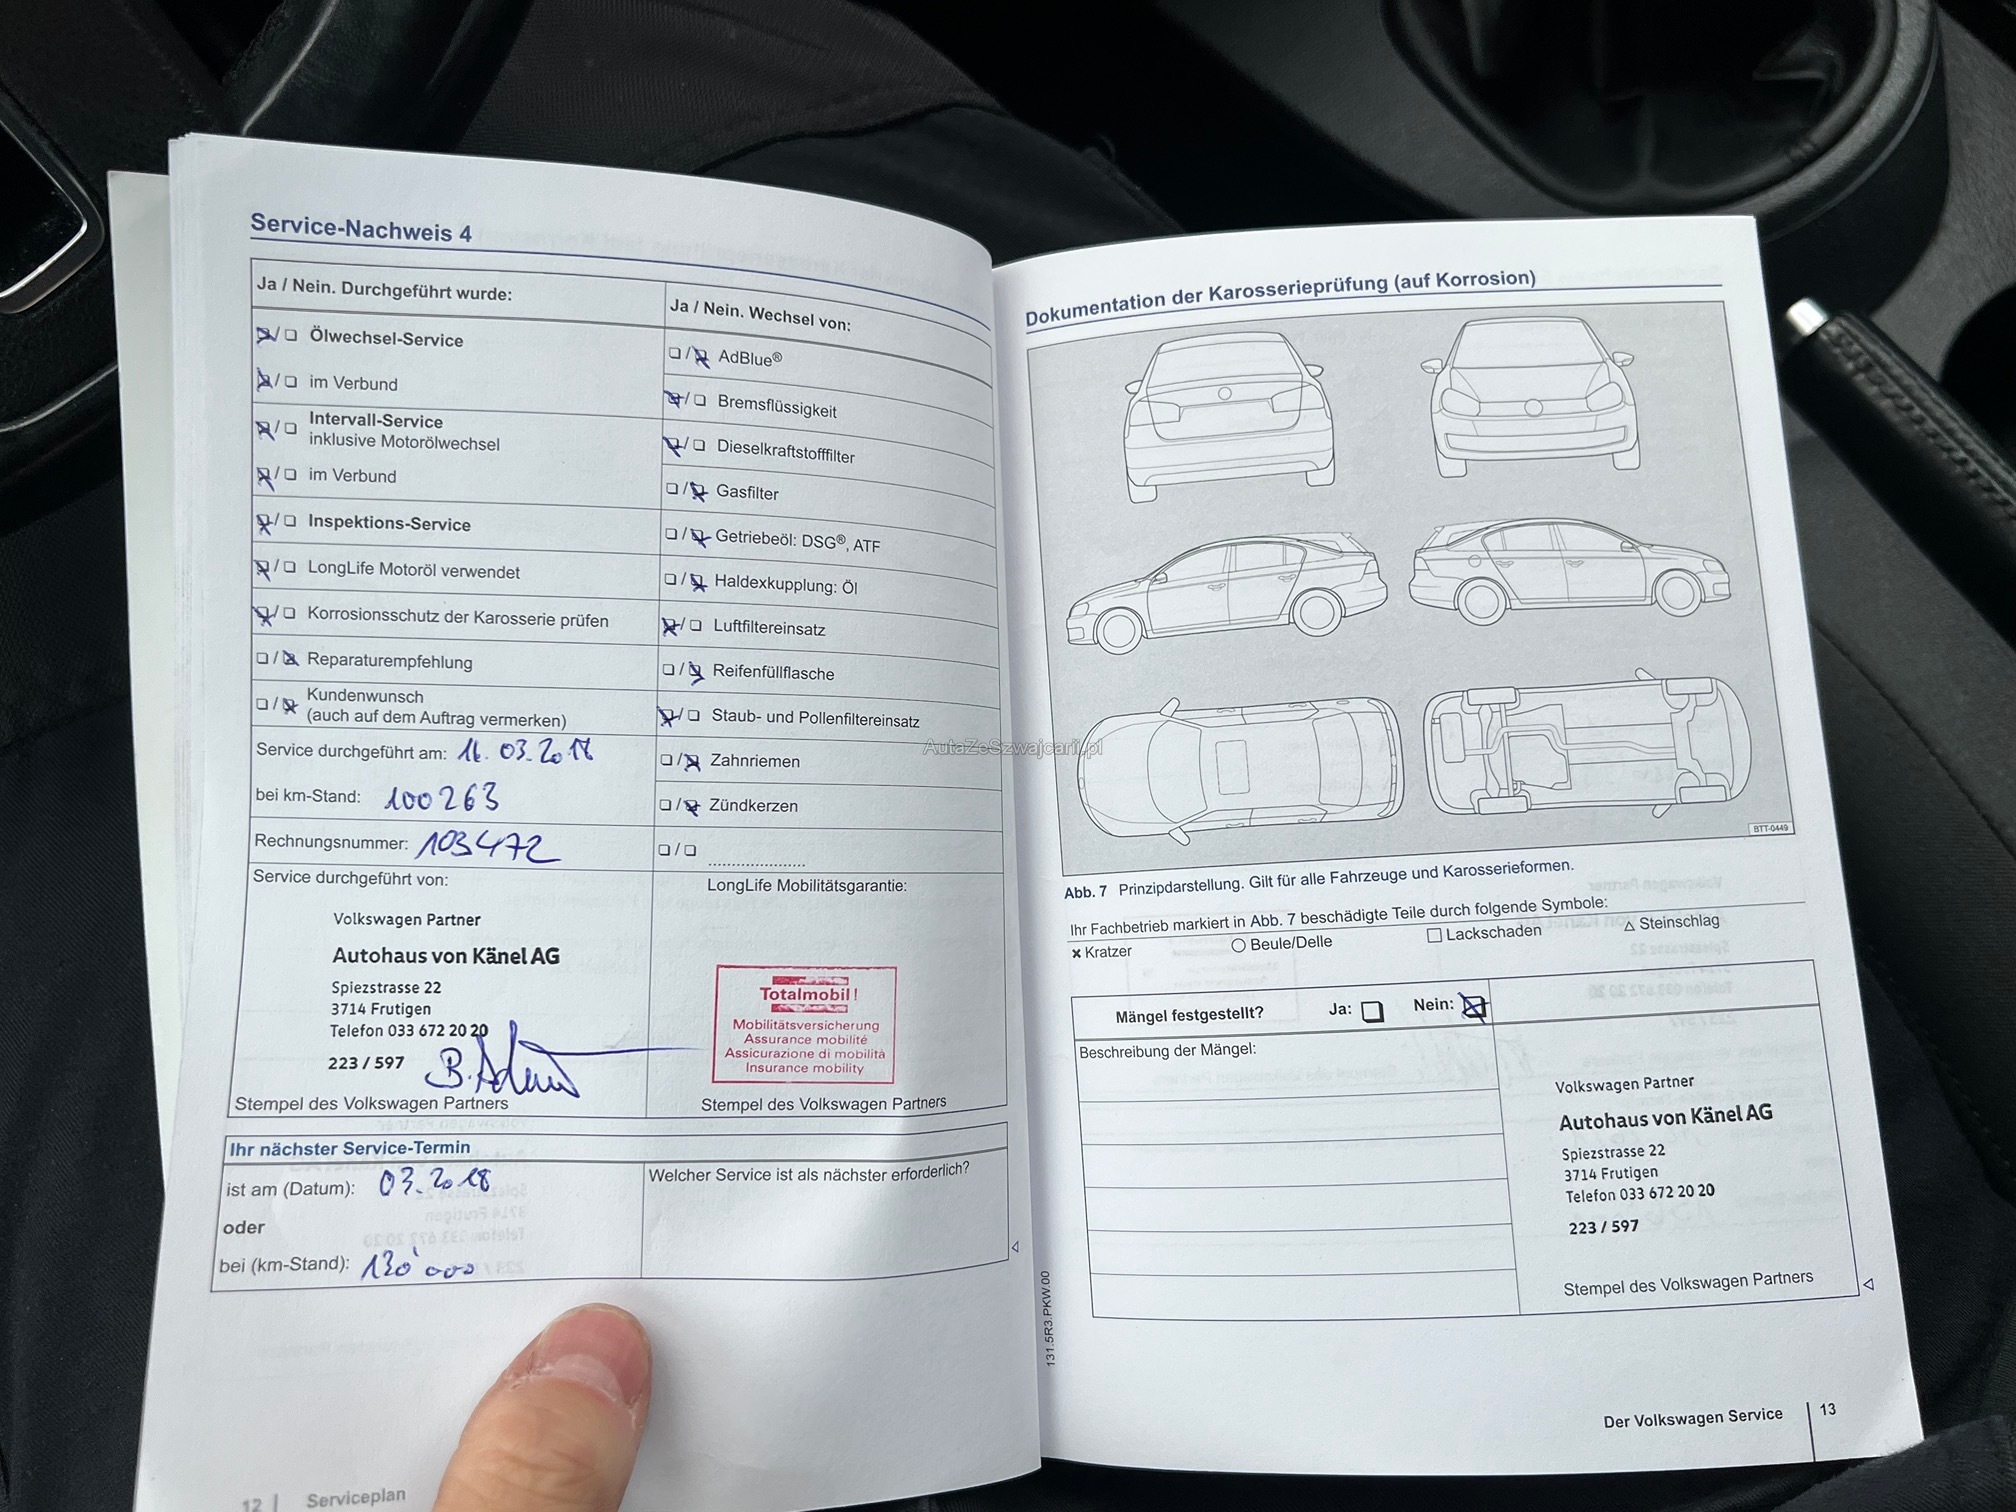 Service-Nachweis 4
Ja / Nein. Durchgeführt wurde:
Ölwechsel-Service
im Verbund
Intervall-Service
inklusive Motorölwechsel
im Verbund
Inspektions-Service
LongLife Motoröl verwendet
Korrosionsschutz der Karosserie prüfen
Reparaturempfehlung
Kundenwunsch
(auch auf dem Auftrag vermerken)
Service durchgeführt am: 03.20
bei km-Stand: 100263
Rechnungsnummer: 103472
Ja / Nein. Wechsel von:
AdBlue®
Bremsflüssigkeit
Dieselkraftstofffilter
Gasfilter
Getriebeöl: DSG®, ATF
Haldexkupplung: Öl
Luftfiltereinsatz
Reifenfüllflasche
Staub- und Pollenfiltereinsatz
Zahnriemen
Zündkerzen
Service durchgeführt von:
Volkswagen Partner
Autohaus von Känel AG
Spiezstrasse 22
3714 Frutigen
Telefon 033 672 20 20
223 / 597
Stempel des Volkswagen Partners
LongLife Mobilitätsgarantie:
Totalmobil!
Mobilitätsversicherung
Assurance mobilité
Assicurazione di mobilità
Insurance mobility
Stempel des Volkswagen Partners
Ihr nächster Service-Termin
ist am (Datum): 03.2018
oder
bei (km-Stand): 130'000
Welcher Service ist als nächster erforderlich?
12 | Serviceplan
AutaZeSzwajcarii.pl
Dokumentation der Karosserieprüfung (auf Korrosion)
BTT-0449
Abb. 7 Prinzipdarstellung. Gilt für alle Fahrzeuge und Karosserieformen.
Ihr Fachbetrieb markiert in Abb. 7 beschädigte Teile durch folgende Symbole:
× Kratzer ○ Beule/Delle □ Lackschaden △ Steinschlag
Mängel festgestellt? Ja: Nein:
Beschreibung der Mängel:
Volkswagen Partner
Autohaus von Känel AG
Spiezstrasse 22
3714 Frutigen
Telefon 033 672 20 20
223 / 597
Stempel des Volkswagen Partners
131.5R3.PKW.00
Der Volkswagen Service | 13